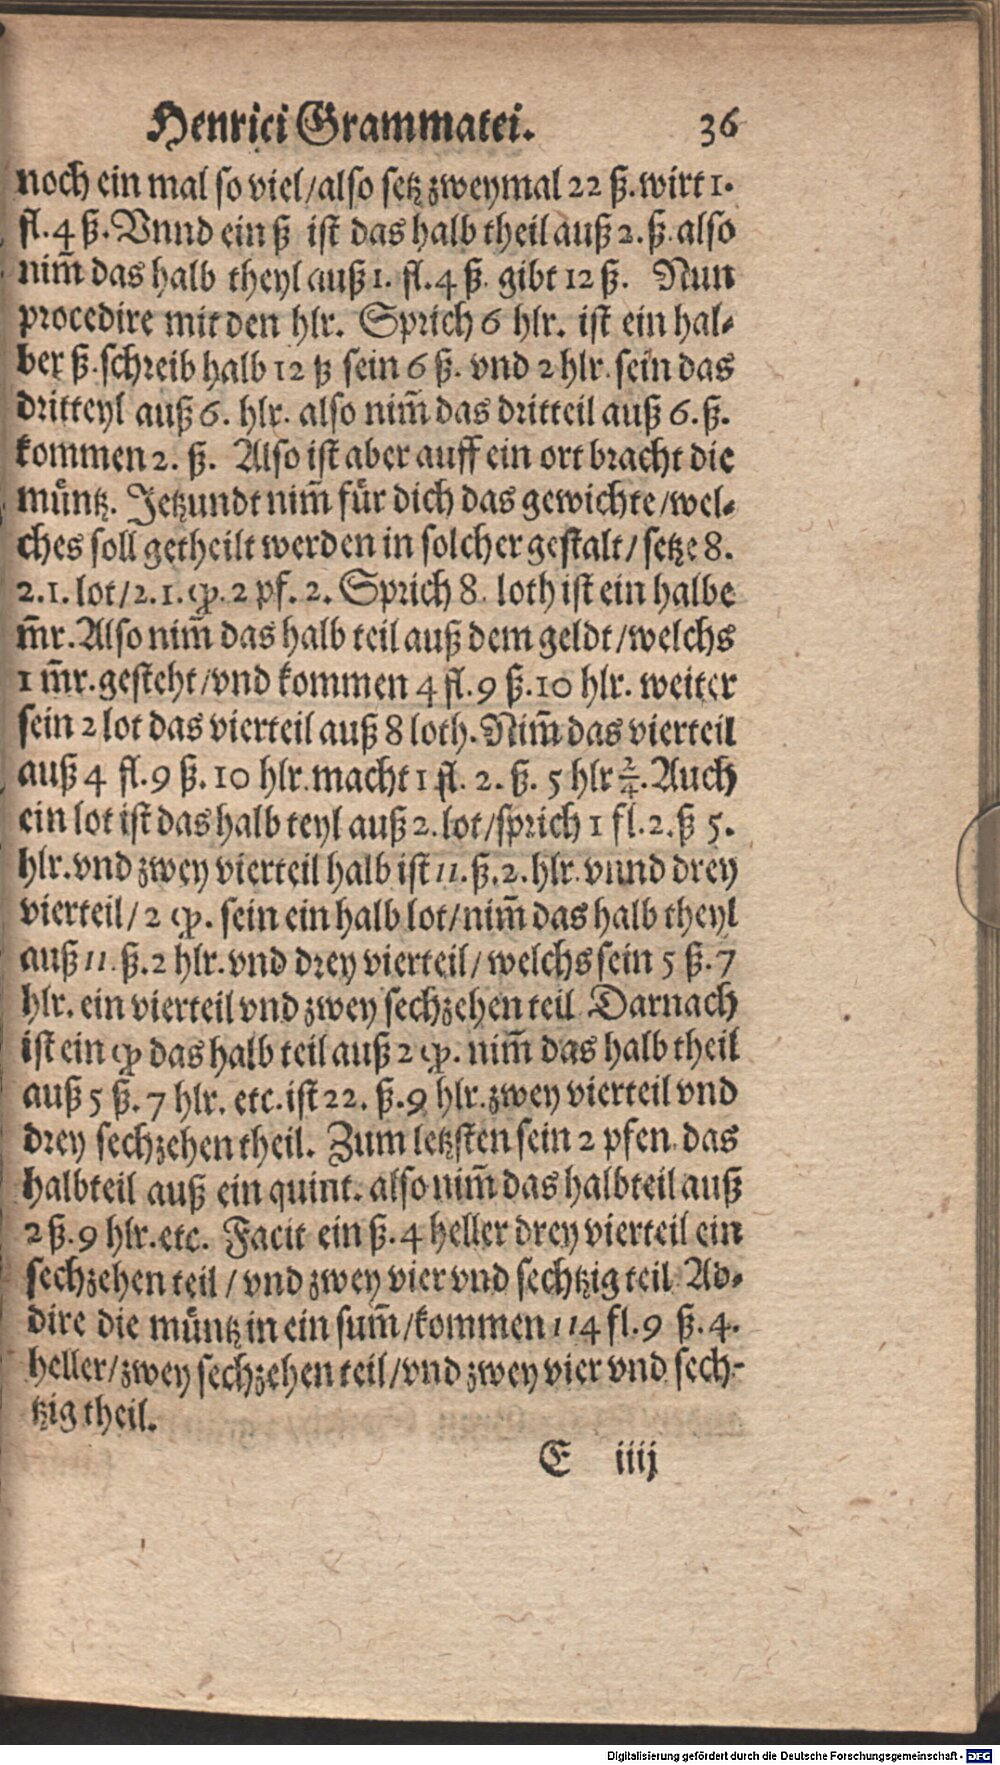 Henrici Grammatei. 36
noch ein mal so viel/also setz zweymal 22 ß. wirt 1.
fl. 4 ß. Vnnd ein ß ist das halb theil auß 2. ß. also
nim̃ das halb theyl auß 1. fl. 4 ß. gibt 12 ß. Nun
procedire mit den hlr. Sprich 6 hlr. ist ein hal-
ber ß. schreib halb 12 ß sein 6 ß. vnd 2 hlr. sein das
dritteyl auß 6. hlr. also nim̃ das dritteil auß 6. ß.
kommen 2. ß. Also ist aber auff ein ort bracht die
muͤntz. Jetzundt nim̃ für dich das gewichte/wel-
ches soll getheilt werden in solcher gestalt/ setze 8.
2. 1. lot/2. 1. qͥ. 2 pf. 2. Sprich 8. loth ist ein halbe
m̃r. Also nim̃ das halb teil auß dem geldt/welchs
1 m̃r. gesteht/vnd kommen 4 fl. 9 ß. 10 hlr. weiter
sein 2 lot das vierteil auß 8 loth. Nim̃ das vierteil
auß 4 fl. 9 ß. 10 hlr. macht 1 fl. 2. ß. 5 hlr 2/4. Auch
ein lot ist das halb teyl auß 2. lot/sprich 1 fl. 2. ß 5.
hlr. vnd zwey vierteil halb ist 11. ß. 2. hlr. vnnd drey
vierteil/ 2 qͥ. sein ein halb lot/nim̃ das halb theyl
auß 11. ß. 2 hlr. vnd drey vierteil/ welchs sein 5 ß. 7
hlr. ein vierteil vnd zwey sechzehen teil Darnach
ist ein qͥ das halb teil auß 2 qͥ. nim̃ das halb theil
auß 5 ß. 7 hlr. etc. ist 22. ß. 9 hlr. zwey vierteil vnd
drey sechzehen theil. Zum letzsten sein 2 pfen. das
halbteil auß ein quint. also nim̃ das halbteil auß
2 ß. 9 hlr. etc. Facit ein ß. 4 heller drey vierteil ein
sechzehen teil / vnd zwey vier vnd sechtzig teil Ad-
dire die muͤntz in ein sum̃/kommen 114 fl. 9 ß. 4.
heller/zwey sechzehen teil/vnd zwey vier vnd sech-
tzig theil.
E iiij
Digitalisierung gefördert durch die Deutsche Forschungsgemeinschaft - DFG